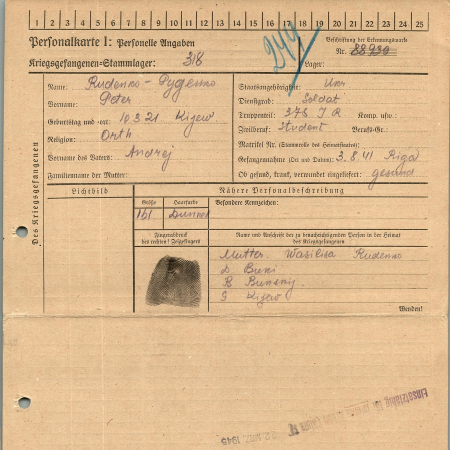 1 2 3 4 5 6 7 8 9 10 11 12 13 14 15 16 17 18 19 20 21 22 23 24 25
Personalkarte I: Personelle Angaben
Kriegsgefangenen-Stammlager: 318
Beschriftung der Erkennungsmarke
Nr. 88930
Lager:
249
Des Kriegsgefangenen
Name: Rudenko - Руденко
Vorname: Peter
Geburtstag und -ort: 10.3.21 Kijew
Religion: Orth
Vorname des Vaters: Andrej
Familienname der Mutter:
Staatsangehörigkeit: Ukr
Dienstgrad: Soldat
Truppenteil: 375 I R Komp. usw.:
Zivilberuf: Student Berufs-Gr.:
Matrikel Nr. (Stammrolle des Heimatstaates):
Gefangennahme (Ort und Datum): 3.8.41 Riga
Ob gesund, krank, verwundet eingeliefert: gesund
Lichtbild
Nähere Personalbeschreibung
Größe Haarfarbe Besondere Kennzeichen:
161 Dunkel
Fingerabdruck
des rechten Zeigefingers
Name und Anschrift der zu benachrichtigenden Person in der Heimat
des Kriegsgefangenen
Mutter. Wasilisa Rudenko
D.
B
G Kijew
Wenden!
1945